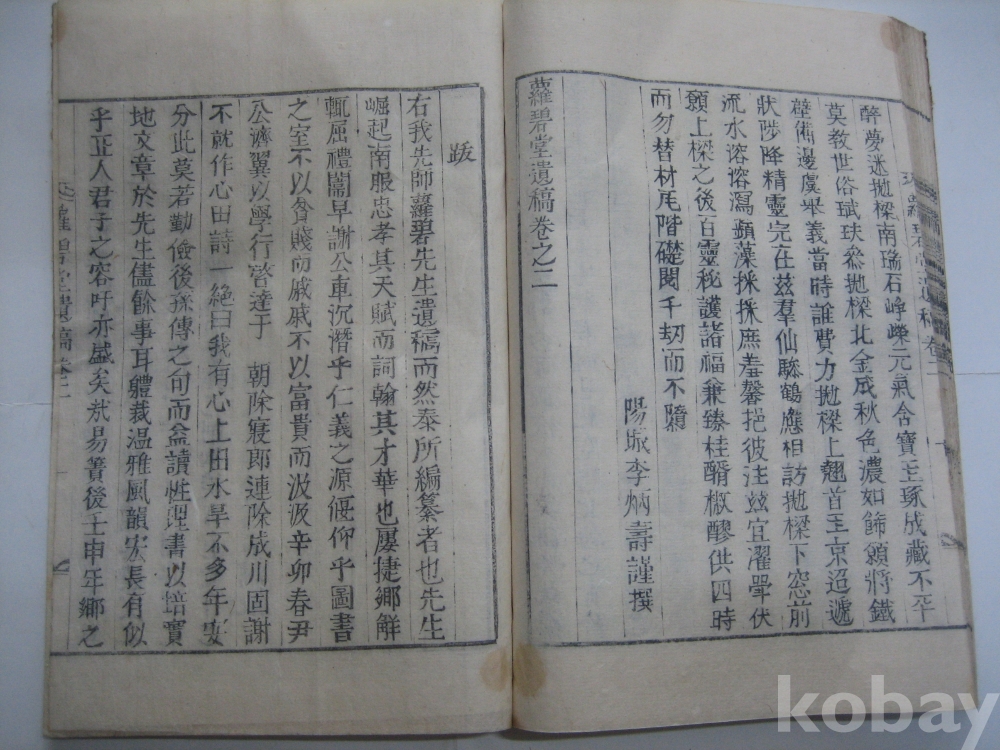 醉夢迷拋樑南瑞石崢嶸元氣含寶玉琢成藏不平
莫教世俗珷玞叅拋樑北金成秋色濃如飾願將鐵
壁備邊虞毕義當時誰費力拋樑上翹首玉京迢遞
狀陟降精靈完在玆羣仙驂鶴應相訪拋樑下窓前
流水溶溶瀉蘋藻採採庶羞馨挹彼注玆宜濯斝伏
願上樑之後百靈秘護諸福兼臻桂醑椒醪供四時
而勿替材瓦階礎閱千刼而不隳
陽城李炳壽謹撰
蘿碧堂遺稿卷之二
跋
右我先師蘿碧先生遺稿而然泰所編纂者也先生
崛起南服忠孝其天賦而詞翰其才華也屢捷鄉解
輒屈禮闈早謝公車沉潛乎仁義之源偃仰乎圖書
之室不以貧賤而戚戚不以富貴而汲汲辛卯春尹
公濟翼以學行啓達于 朝除寢郎連除成川固謝
不就作心田詩一絶曰我有心上田水旱不多年安
分此莫若勤儉後孫傳之句而益讀性理書以培實
地文章於先生儘餘事耳體裁温雅風韻宏長有似
乎正人君子之容吁亦盛矣哉易簀後壬申年鄉之
蘿碧堂遺稿卷二
kobay